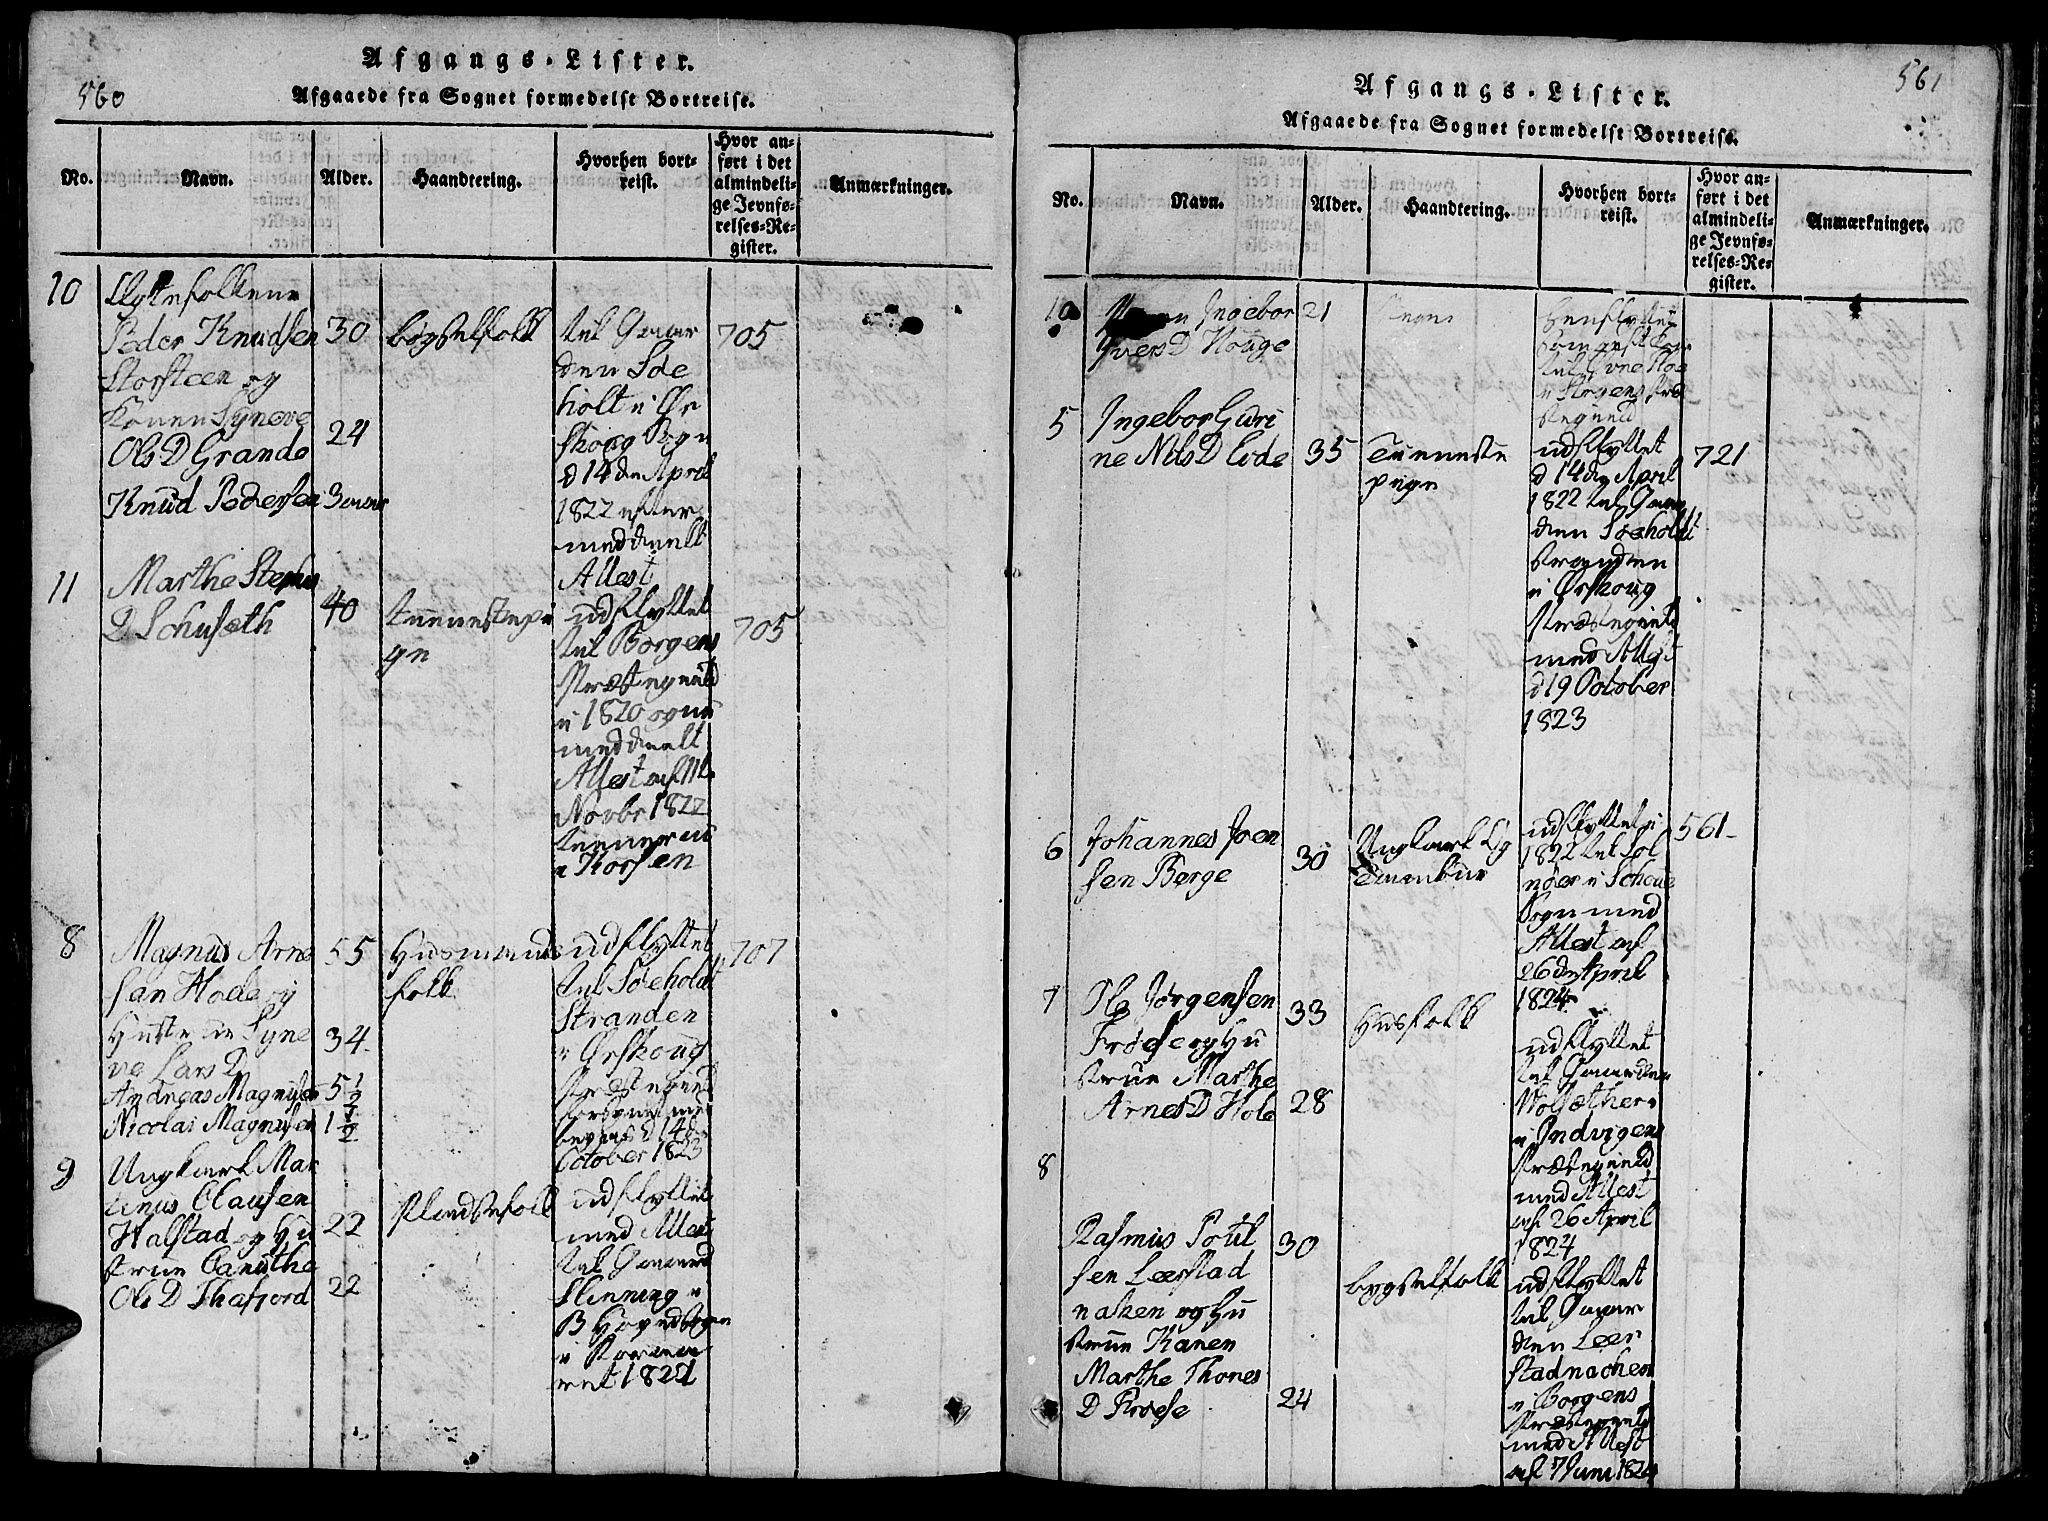 560
Afgangs-Lister.
Afgaaede fra Sognet formedelst Bortreise.
No.
Navn.
Alder.
Haandtering.
Hvorhen bort-
reist.
Hvor an-
ført i det
almindeli-
ge Jevnfø-
relses-Re-
gister.
Anmærkninger.
10
Peder Knudsen 30
Storsteen og
Konen Syneve
Ols D Grande 24
Knud Pedersen 3 aar
bøgselfolk
til Gaar
den Søe
holt i Ør
skoug Sogn
d 14de April
1822 efter
meddeelt
Attest
705
11
Marthe Stephus
D Schuseth
40
tienestepi
ge
udflyttet
til Borgens
Præstegield
i 1820 og nu
meddeelt
Attest af 11te
Novbr 1822
tiener nu
i Korsen
705
8
Magnus Arne
sen Hode og
Hustrue Syne
ve Lars D
Andreas Magnusen
Nicolai Magnusen
55
34
5 1/2
1 1/2
Husmands
folk
udflyttet
til Søeholdt
Stranden
i Ørskoug
Præstegield
d 14de
October 1823
707
9
Ungkarl Mar
tinus Clausen
Halstad og Hu
strue Canuthe
Ols D Skafjord
22
22
Pladsefolk
udflyttet
med Attest
til Gaard
Slinning i
Borgund Sogn
1821
561
Afgangs-Lister.
Afgaaede fra Sognet formedelst Bortreise.
No.
Navn.
Alder.
Haandtering.
Hvorhen bort-
reist.
Hvor an-
ført i det
almindeli-
ge Jevnfø-
relses-Re-
gister.
Anmærkninger.
10
Ingebor
Ivers D Houge
21
Pige
henflyttet
5
Ingebor Guri
ne Nils D Eide
35
Tieneste
pige
udflyttet
d 14de April
1822 til Gaar
den Søeholdt
Stranden
i Ørskoug
Præstegield
med Attest
d 19 October
1823
721
6
Johannes Joen
sen Berge
30
Ungkarl og
Tømbiur
udflyttet i
1822 til Sol
nøer i Schoue
Sogn med
Attest af
26de April
1824
561
7
Ole Jørgensen
Frøes og Hu
strue Marthe
Arnes D Hole
33
28
Husfolk
udflyttet
til Gaarden
i Indvigens
Præstegield
med Attest
af 26 April
1824
8
Rasmus Poul
sen Leerstad
naken og Hu
strue Karen
Marthe Thores
D Frøese
30
24
bygselfolk
udflyttet
til Gaar
den Leer
stadnachen
i Borgens
Præstegield
med Attest
af 7 Juni 1824